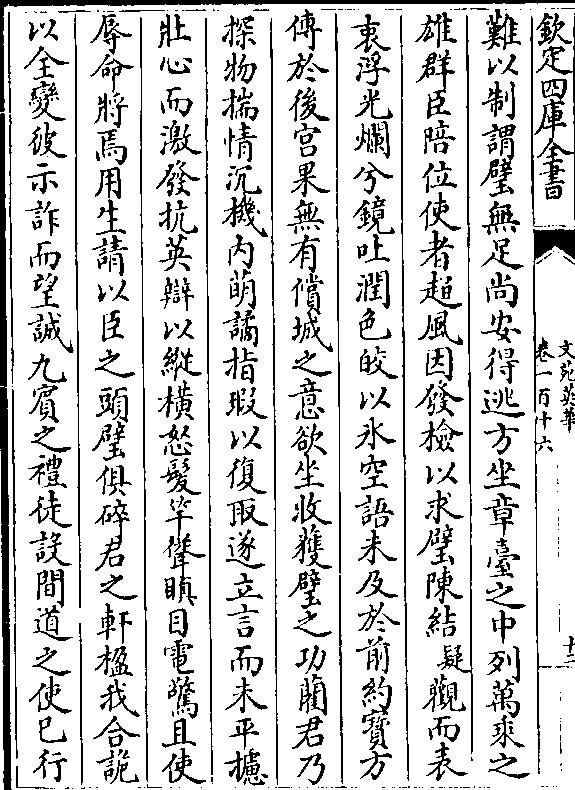 欽定四庫全書
難以制謂璧無足尚安得逃方坐章臺之中列萬乘之
雄群臣陪位使者趨風因發檢以求璧陳結疑觀而表
衷浮光爛兮鏡吐潤色皎以氷空語未及於前約寳方
傳於後宫果無有償城之意欲坐收獲璧之功藺君乃
探物揣情沉機内萌譎指瑕以復取遂立言而未平攄
壯心而激發抗英辯以縱横怒髪竿聳瞋目電驚且使
辱命將焉用生請以臣之頭璧俱碎君之軒楹我合詭
以全變彼示詐而望誠九賔之禮徒設間道之使已行
文苑英華
卷一百十六
十二